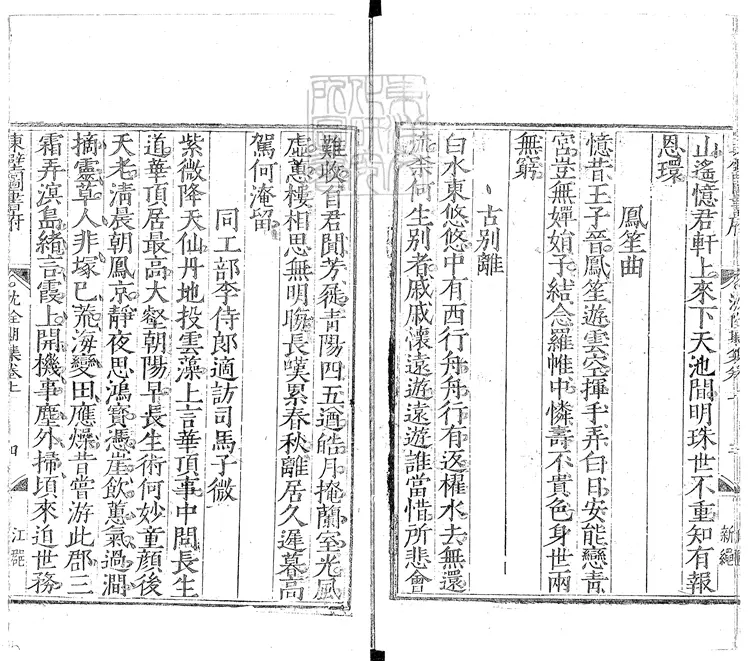 山遙憶君軒上來下天池間明珠世不重知有報
恩環
鳳笙曲
憶昔王子晉鳳笙遊雲空揮手弄白日安能戀青
宮豈無嬋娟子結念羅帷中憐壽不貴色身世兩
無窮
古別離
白水東悠悠中有西行舟舟行有返櫂水去無還
流奈何生別者戚戚懷遠遊遠遊誰當惜所悲會
新
難收自君間芳躧青陽四五遒皓月掩蘭室光風
虛蕙樓相思無明晦長嘆累春秋離居久遲暮高
駕何淹留
同工部李侍郎適訪司馬子微
紫微降天仙丹地投雲藻上言華頂事中間長生
道華頂居最高大壑朝陽早長生術何妙童顏後
天老清晨朝鳳京靜夜思鴻寶憑崖飲蕙氣過澗
摘靈草人非塚已荒海變田應燥昔嘗游此郡三
霜弄溟島緒言霞上開機事塵外掃頃來迫世務
東壁圖書府
沈佺期集卷上
四
江